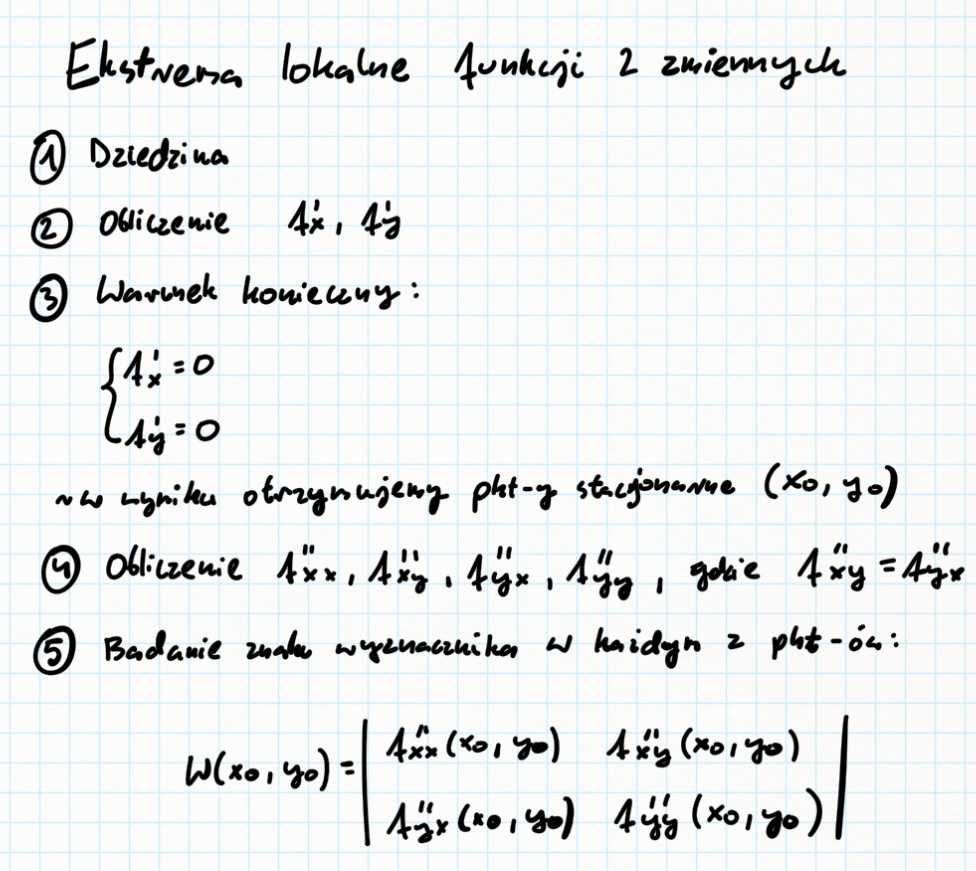 Ekstrema lokalne funkcji 2 zmiennych
① Dziedzina
② Obliczenie f'x, f'y
③ Warunek konieczny:
{f'x = 0
f'y = 0
~ w wyniku otrzymujemy pkt-y stacjonarne (x0, y0)
④ Obliczenie f''xx, f''xy, f''yx, f''yy, gdzie f''xy = f''yx
⑤ Badanie znaku wyznacznika w każdym z pkt-ów:
W(x0, y0) = | f''xx (x0, y0) f''xy (x0, y0) |
| f''yx (x0, y0) f''yy (x0, y0) |